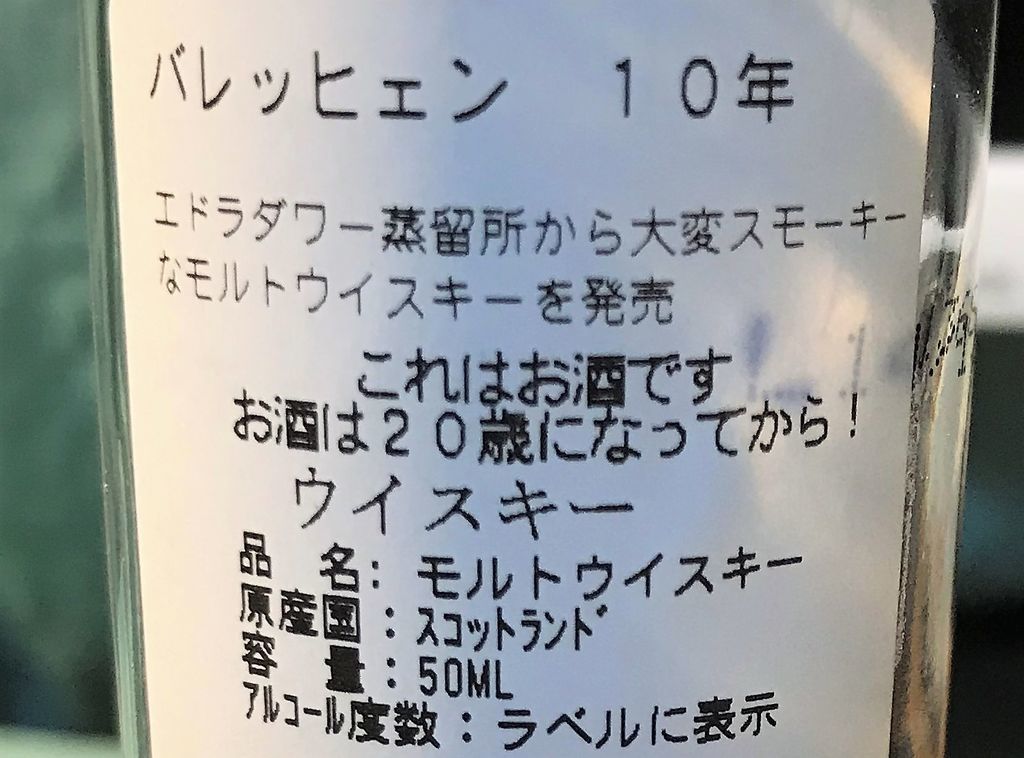 バレッヒェン　１０年
エドラダワー蒸留所から大変スモーキー
なモルトウイスキーを発売
これはお酒です
お酒は２０歳になってから！
ウイスキー
品　名：モルトウイスキー
原産国：ｽｺｯﾄﾗﾝﾄﾞ
容　量：50ML
ｱﾙｺｰﾙ度数：ラベルに表示